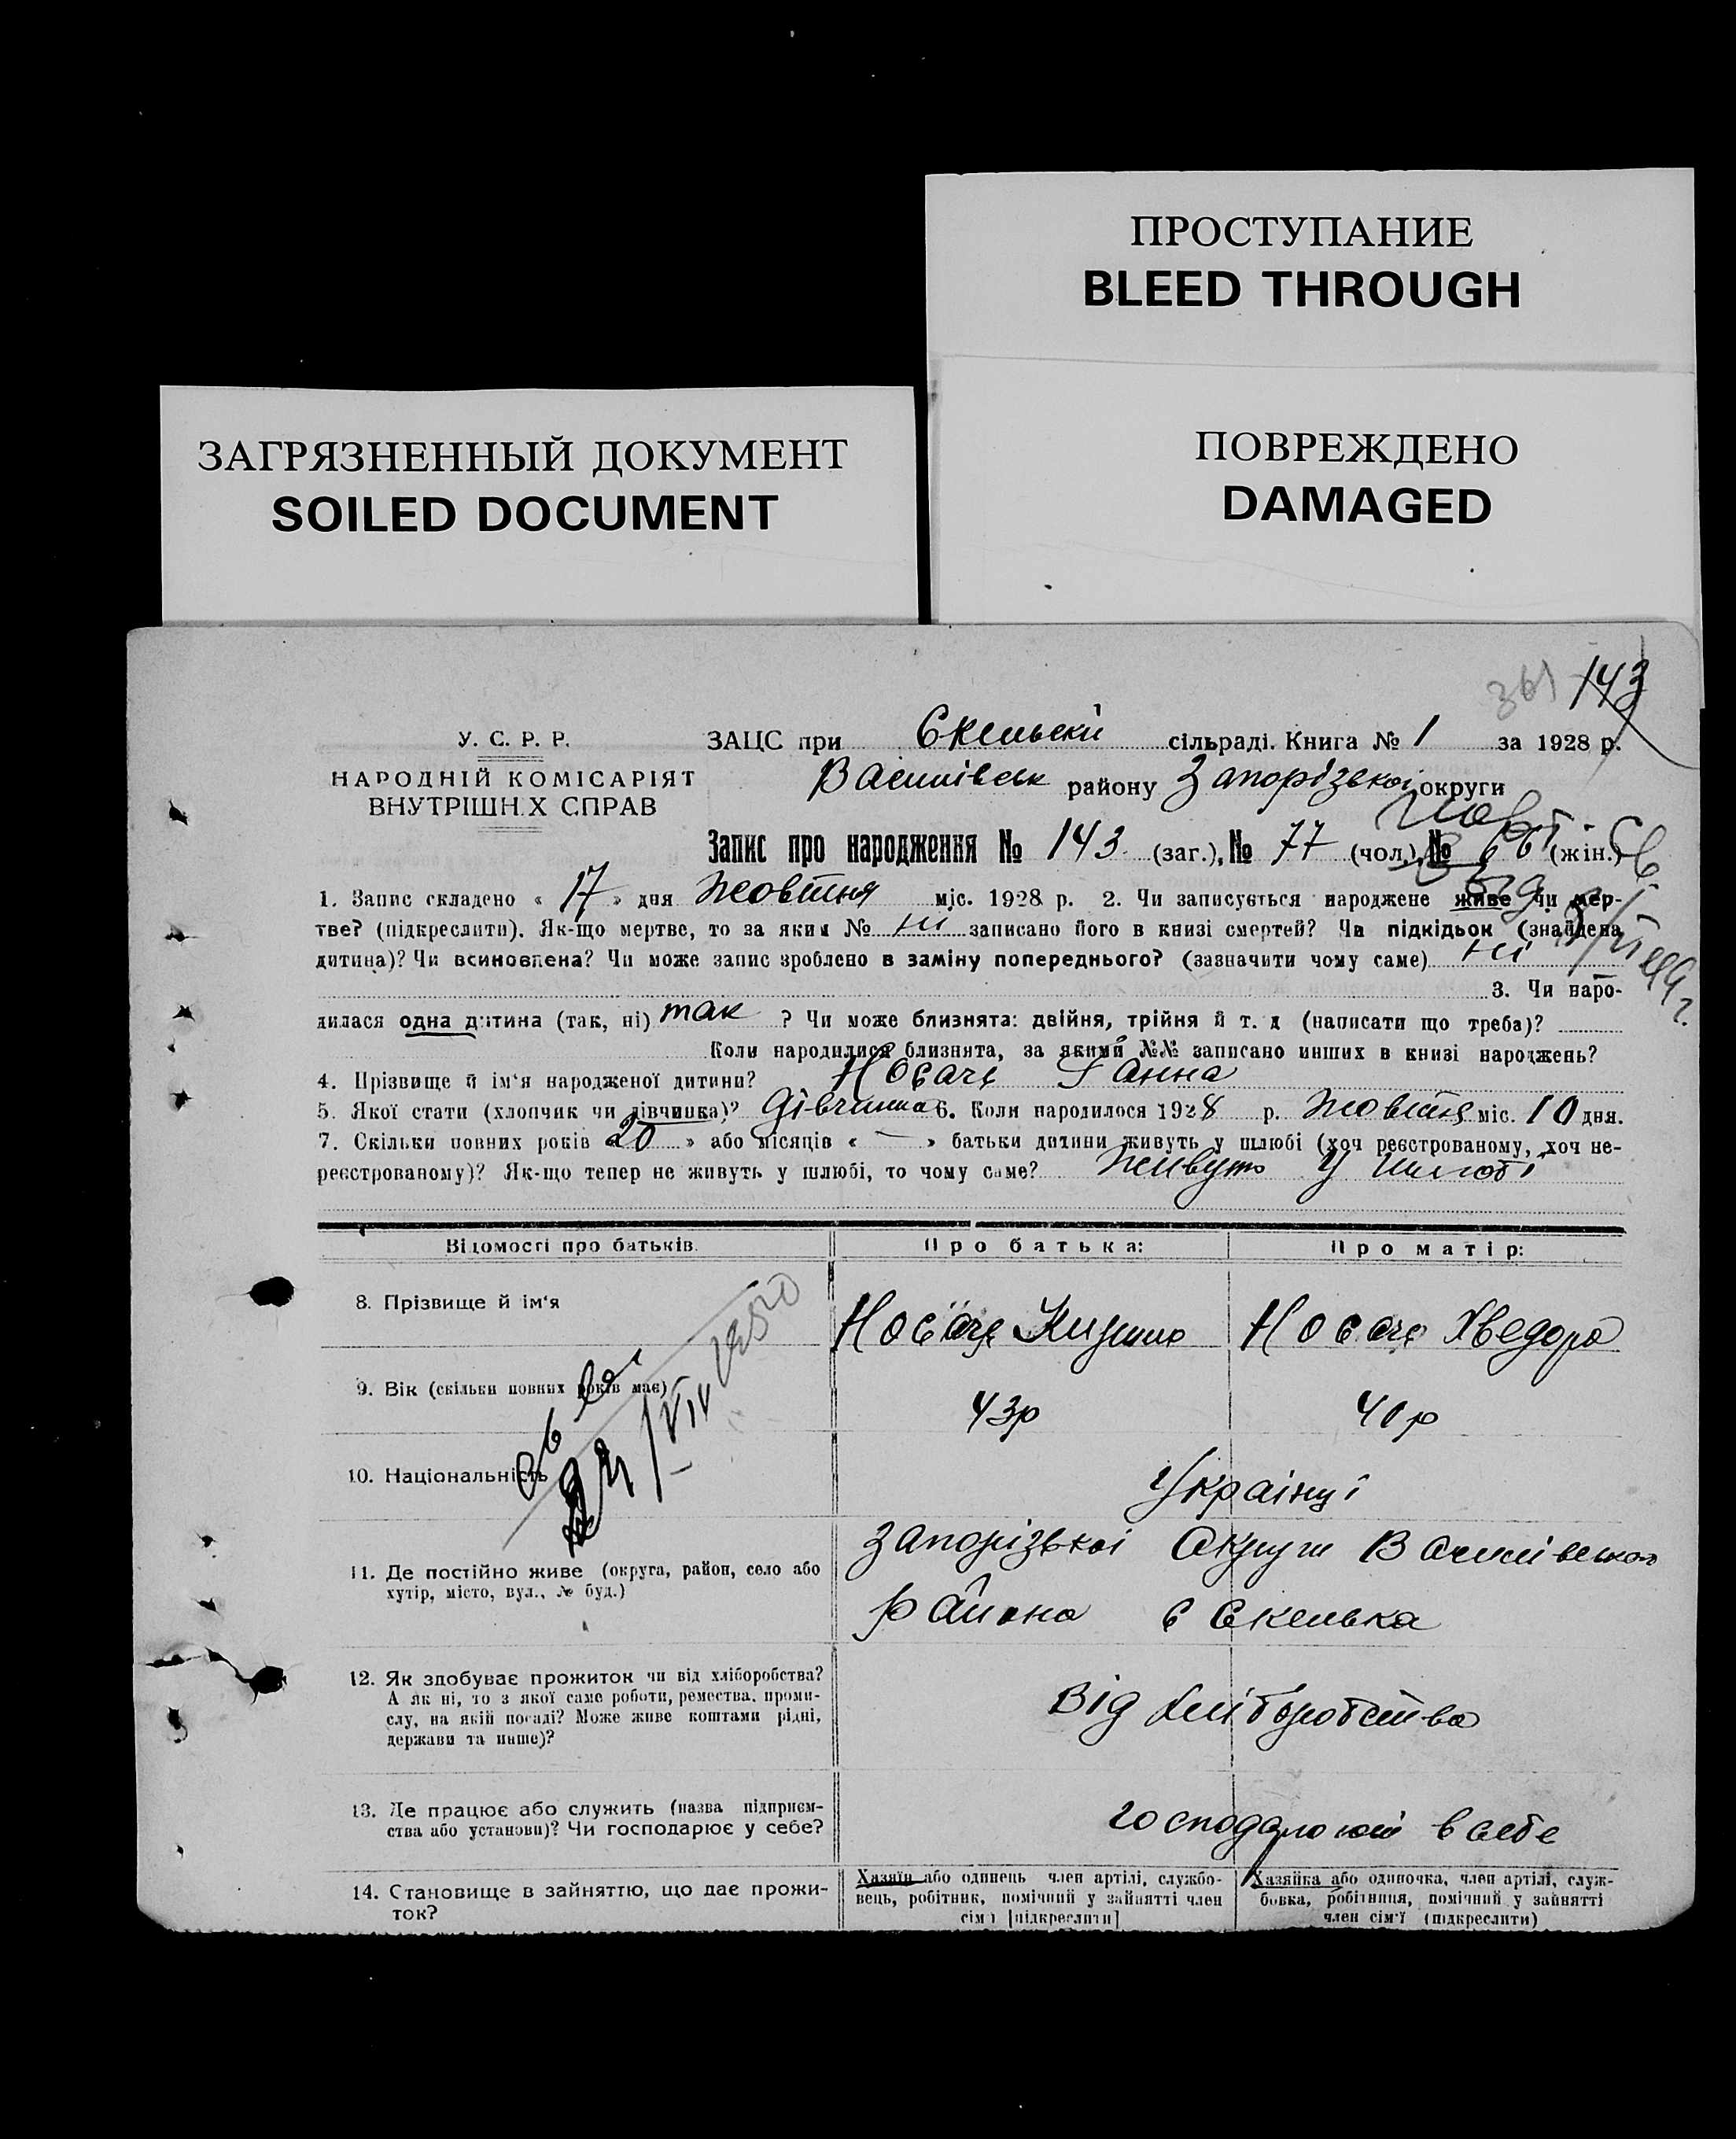 ПРОСТУПАНИЕ
BLEED THROUGH
ЗАГРЯЗНЕННЫЙ ДОКУМЕНТ
SOILED DOCUMENT
ПОВРЕЖДЕНО
DAMAGED
361 143
У. С. Р. Р.
НАРОДНІЙ КОМІСАРІЯТ
ВНУТРІШН.Х СПРАВ
ЗАЦС при Єкельскій сільраді. Книга № 1 за 1928 р.
Василівськ району Запорізької округи
Запис про народження № 143 (заг.), № 77 (чол.), № 66 (жін.)
1. Запис складено « 17 » дня Жовтня міс. 1928 р. 2. Чи записується народжене живе чи мер-
тве? (підкреслити). Як-що мертве, то за яким № ні записано його в книзі смертей? Чи підкідьок (знайдена
дитина)? Чи всиновлена? Чи може запис зроблено в заміну попереднього? (зазначити чому саме) ні
3. Чи наро-
дилася одна дитина (так, ні) так ? Чи може близнята: двійня, трійня й т. д (написати що треба)?
Коли народилися близнята, за якими №№ записано инших в книзі народжень?
4. Прізвище й ім'я народженої дитини? Носаче Ганна
5. Якої стати (хлопчик чи дівчинка)? дівчинка 6. Коли народилося 1928 р. жовтня міс. 10 дня.
7. Скільки повних років « 20 » або місяців « — » батьки дитини живуть у шлюбі (хоч реєстрованому, хоч не-
реєстрованому)? Як-що тепер не живуть у шлюбі, то чому саме? Живуть у шлюбі
Відомості про батьків. Про батька: Про матір:
8. Прізвище й ім'я Носаче Кизьма Носаче Хведора
9. Вік (скільки повних років має) 43р 40р
10. Національність Українці
11. Де постійно живе (округа, район, село або
хутір, місто, вул., № буд.)
Запорізької Округи Василівського
района с Скелька
12. Як здобуває прожиток чи від хліборобства?
А як ні, то з якої саме роботи, ремества, проми-
слу, на якій посаді? Може живе коштами рідні,
держави та инше)?
Від хліборобства
13. Де працює або служить (назва підприєм-
ства або установи)? Чи господарює у себе?
господарюють в себе
14. Становище в зайняттю, що дає прожи-
ток?
Хазяїн або одинець член артілі, службо-
вець, робітник, помічний у зайнятті член
сім'ї [підкреслити]
Хазяйка або одиночка, член артілі, служ-
бовка, робітниця, помічний у зайнятті
член сім'ї (підкреслити)